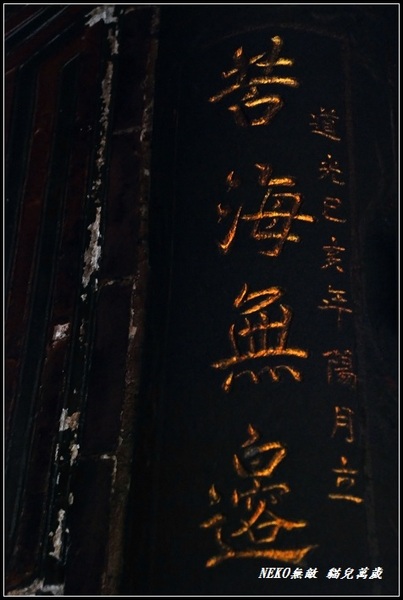 道光己亥年陽月立
苦海無邊
NEKO無敵 貓兒萬歲